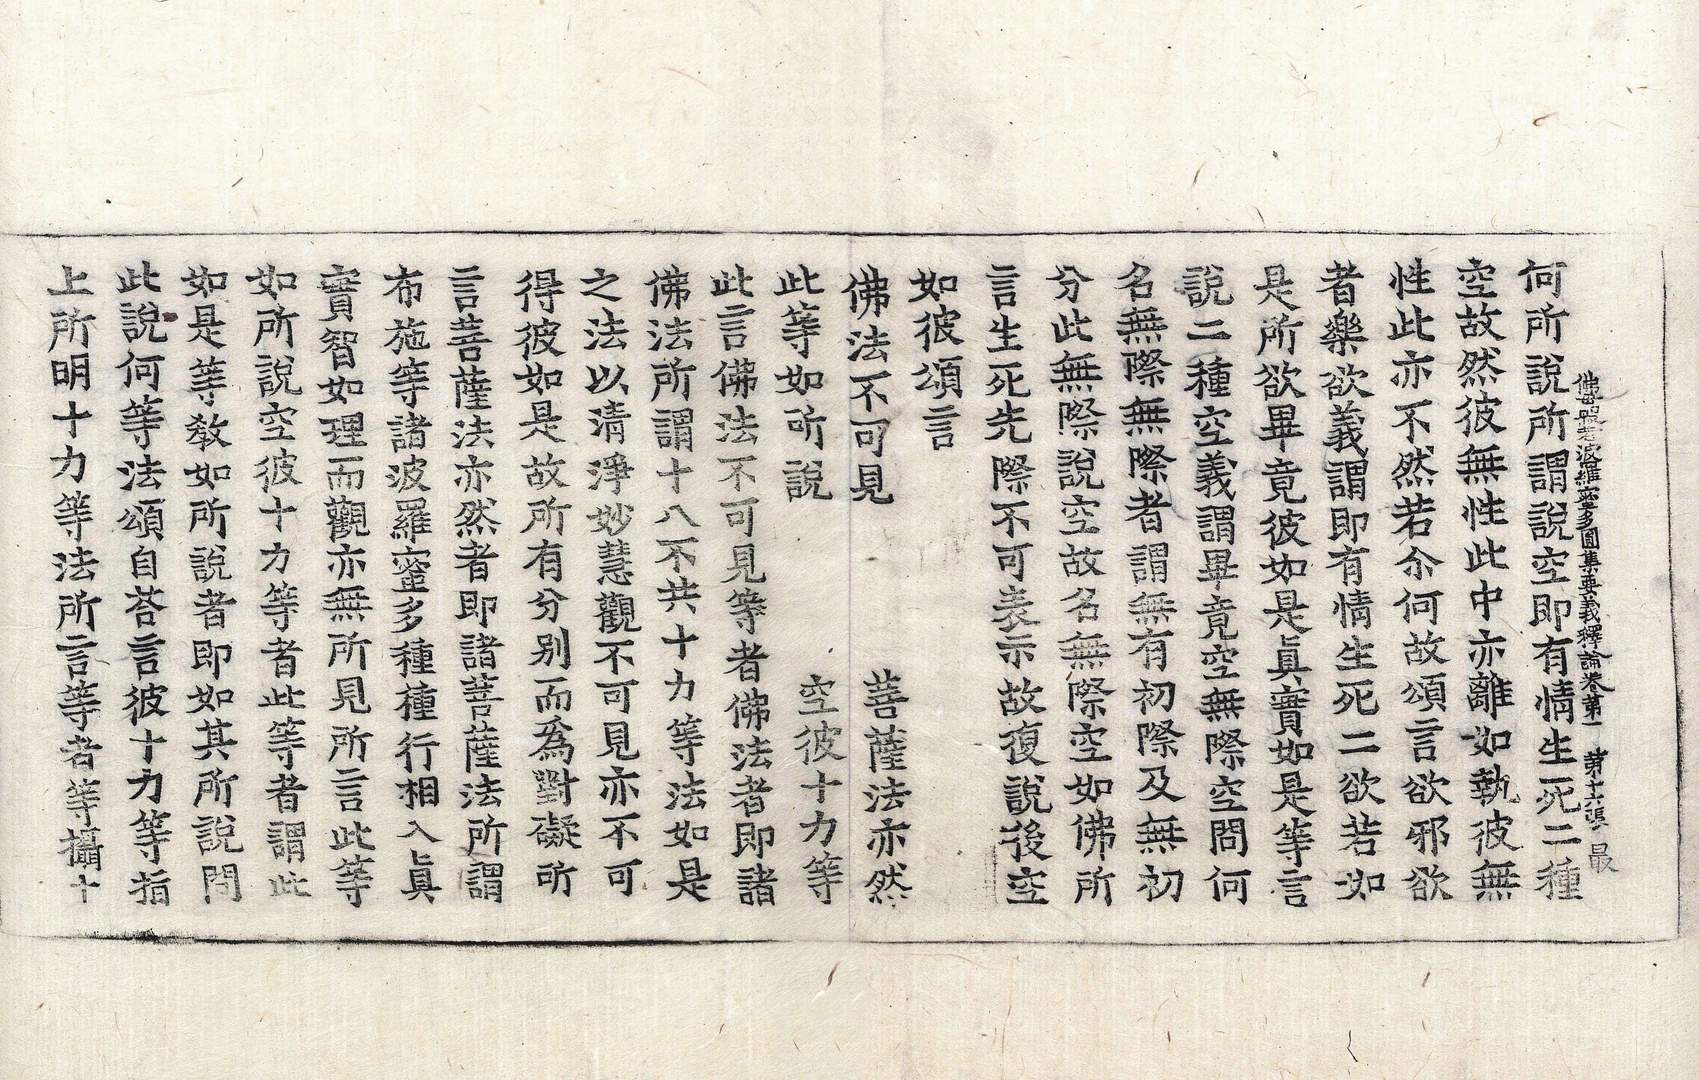 佛母般若波羅蜜多圓集要義釋論卷第一　第十六張　最
何所說所謂說空即有情生死二種
空故然彼無性此中亦離如執彼無
性此亦不然若尒何故頌言欲邪欲
者樂欲義謂即有情生死二欲若如
是所欲畢竟彼如是眞實如是等言
說二種空義謂畢竟空無際空問何
名無際無際者謂無有初際及無初
分此無際說空故名無際空如佛所
言生死先際不可表示故復說後空
如彼頌言
佛法不可見　菩薩法亦然
此等如所說　空彼十力等
此言佛法不可見等者佛法者即諸
佛法所謂十八不共十力等法如是
之法以清淨妙慧觀不可見亦不可
得彼如是故所有分別而爲對礙所
言菩薩法亦然者即諸菩薩法所謂
布施等諸波羅蜜多種種行相入眞
實智如理而觀亦無所見所言此等
如所說空彼十力等者此等者謂此
如是等教如所說者即如其所說問
此說何等法頌自荅言彼十力等指
上所明十力等法所言等者等攝十